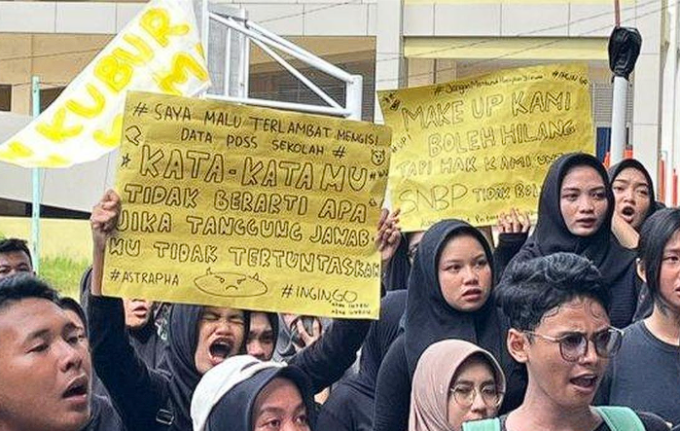 KUBUR
# SAYA MALU TERLAMBAT MENGISI
DATA PDSS SEKOLAH #
KATA-KATAMU
TIDAK BERARTI APA
JIKA TANGGUNG JAWAB
MU TIDAK TERTUNTASKAN
#ASTRAPHA
#INGINGO
#INGIN GO
MAKE UP KAMI
BOLEH HILANG
TAPI HAK KAMI UNTUK
SNBP TIDAK BOLE